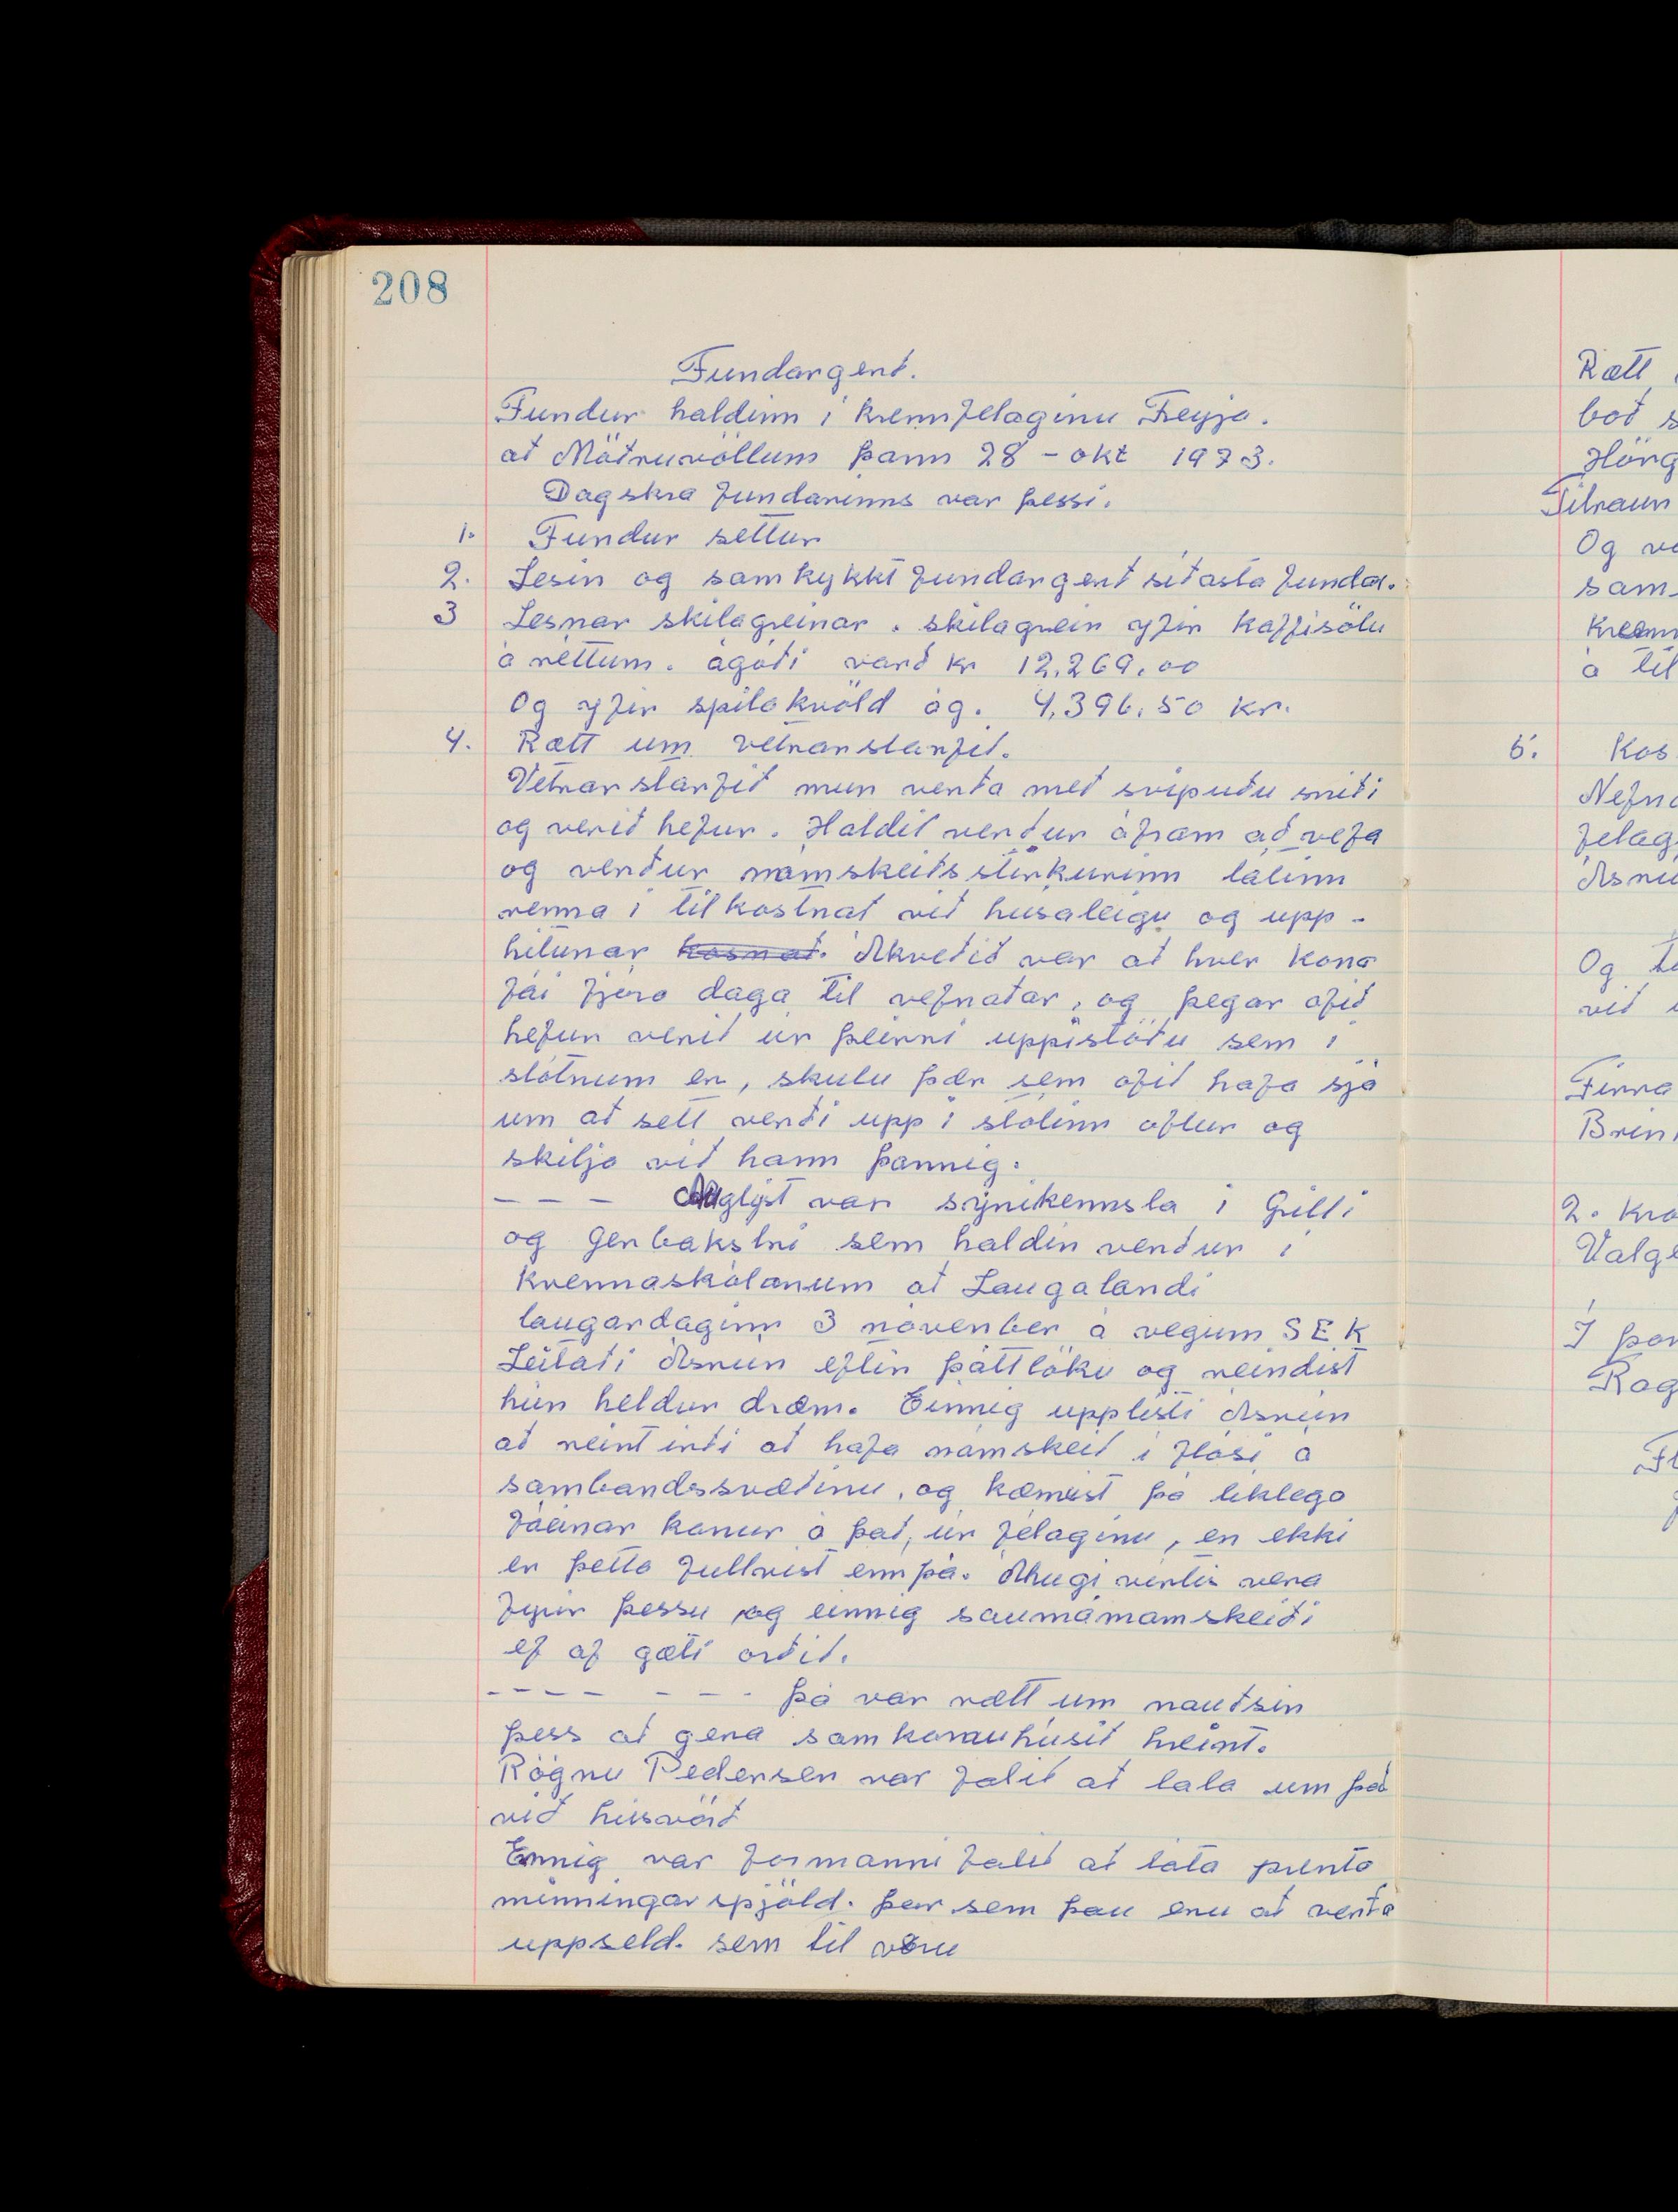 208
Fundargerð.
Fundur haldinn í kvennfelaginu Freyja.
að Möðruvöllum þann 28 - okt 1973.
Dagskrá fundarinns var þessi.
1. Fundur settur
2. Lesin og samþykkt fundargerð síðasta fundar.
3 Lesnar skilagreinar. skilagrein yfir kaffisölu
á rettum. ágóði varð kr 12.269.00
Og yfir spilakvöld ág. 4,396.50 kr.
4. Rætt um vetrarstarfið.
Vetrarstarfið mun verða með svipuðu sniði
og verið hefur. Haldið verður áfram að vefa
og verður námskeiðsstirkurinn látinn
renna í tilkostnað við húsaleigu og upp-
hitunar kosnað. Akveðið var að hver kona
fái fjóra daga til vefnaðar, og þegar ofið
hefur verið úr þeirri uppistöðu sem í
stólnum er, skulu þær sem ofið hafa sjá
um að sett verði upp í stólinn aftur og
skilja við hann þannig.
--- Auglýst var sýnikennsla í Grilli
og Gerbakstri sem haldin verður í
kvennaskólanum að Laugalandi
laugardaginn 3 november á vegum S E K
Leitaði Asrun eftir þátttöku og reindist
hún heldur dræm. Einnig upplisti Asrun
að reint irði að hafa námskeið í flosi á
sambandssvæðinu, og kæmust þá liklega
fáeinar konur á það, úr félaginu, en ekki
er þetta fullvist enn þá. Ahugi virtis vera
fyrir þessu og einnig saumanámskeiði
ef af gæti orðið.
---- --- Þá var rætt um nauðsin
þess að gera samkomuhúsið hreint.
Rögnu Pedersen var falið að tala um það
við húsvörð
Einnig var formanni falið að láta prenta
minningarspjöld. þar sem þau eru að verða
uppseld. sem til voru
Rætt
boð s
Hörg
Tilraun
Og
sam
Kvenn
á til
5. Kos
Nefn
felag
Asru
Og
við
Finna
Brin
2.
Valg
Í þor
Rag